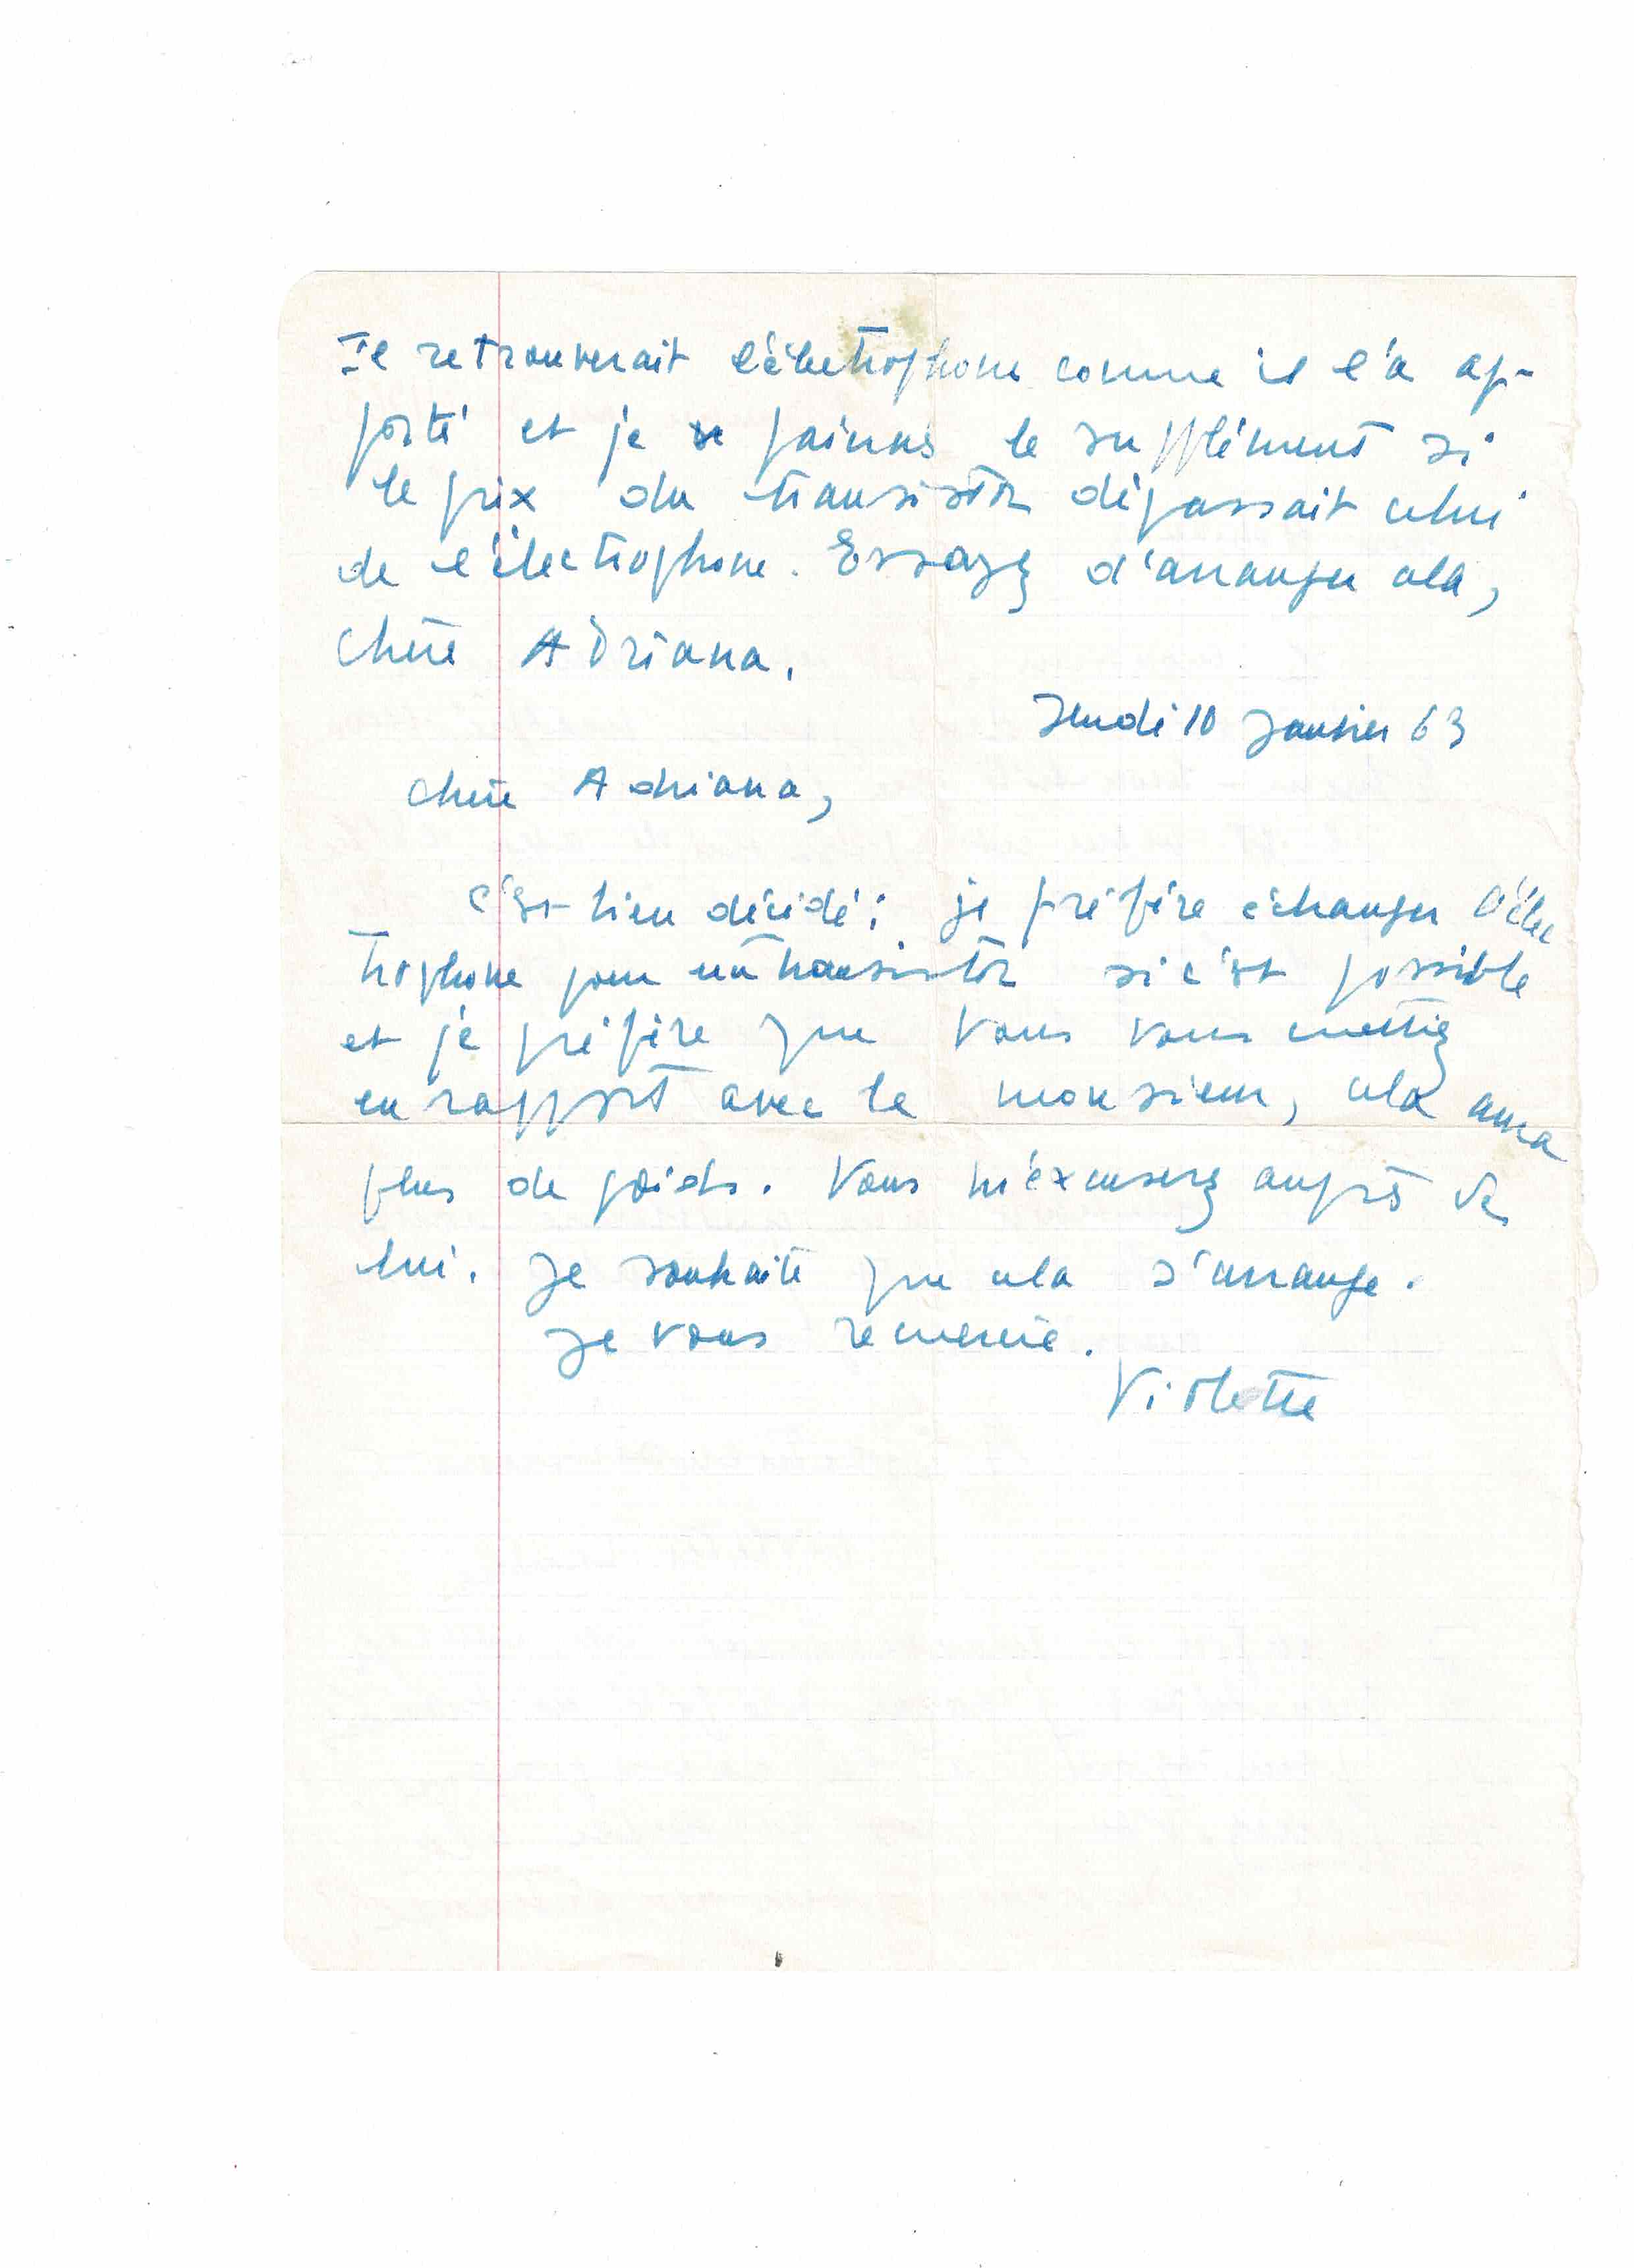 Il retrouverait l'électrophone comme il l'a ap-
porté et je paierais le supplément si
le prix du transistor dépassait celui
de l'électrophone. Essayez d'arranger cela,
chère Adriana.
Jeudi 10 Janvier 63
Chère Adriana,
C'est bien décidé : je préfère échanger l'élec
trophone pour un transistor si c'est possible
et je préfère que vous vous mettiez
en rapport avec le monsieur, cela aura
plus de poids. Vous m'excuserez auprès de
lui. Je souhaite que cela s'arrange.
Je vous remercie.
Violette